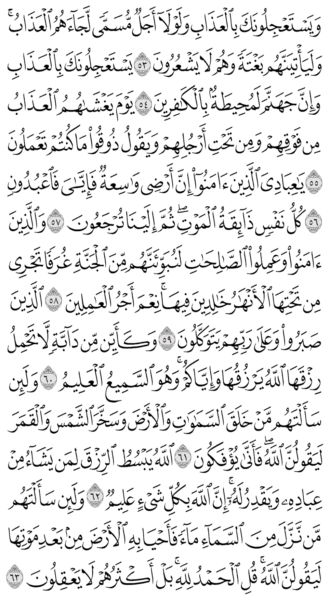 وَيَسْتَعْجِلُونَكَ بِالْعَذَابِ وَلَوْلَا أَجَلٌ مُّسَمًّى لَّجَاءَهُمُ الْعَذَابُ ۚ
وَلَيَأْتِيَنَّهُم بَغْتَةً وَهُمْ لَا يَشْعُرُونَ ٥٣ يَسْتَعْجِلُونَكَ بِالْعَذَابِ
وَإِنَّ جَهَنَّمَ لَمُحِيطَةٌ بِالْكَافِرِينَ ٥٤ يَوْمَ يَغْشَاهُمُ الْعَذَابُ
مِن فَوْقِهِمْ وَمِن تَحْتِ أَرْجُلِهِمْ وَيَقُولُ ذُوقُوا مَا كُنتُمْ تَعْمَلُونَ
٥٥ يَا عِبَادِيَ الَّذِينَ آمَنُوا إِنَّ أَرْضِي وَاسِعَةٌ فَإِيَّايَ فَاعْبُدُونِ
٥٦ كُلُّ نَفْسٍ ذَائِقَةُ الْمَوْتِ ۖ ثُمَّ إِلَيْنَا تُرْجَعُونَ ٥٧ وَالَّذِينَ
آمَنُوا وَعَمِلُوا الصَّالِحَاتِ لَنُبَوِّئَنَّهُم مِّنَ الْجَنَّةِ غُرَفًا تَجْرِي
مِن تَحْتِهَا الْأَنْهَارُ خَالِدِينَ فِيهَا ۚ نِعْمَ أَجْرُ الْعَامِلِينَ ٥٨ الَّذِينَ
صَبَرُوا وَعَلَىٰ رَبِّهِمْ يَتَوَكَّلُونَ ٥٩ وَكَأَيِّن مِّن دَابَّةٍ لَّا تَحْمِلُ
رِزْقَهَا اللَّهُ يَرْزُقُهَا وَإِيَّاكُمْ ۚ وَهُوَ السَّمِيعُ الْعَلِيمُ ٦٠ وَلَئِن
سَأَلْتَهُم مَّنْ خَلَقَ السَّمَاوَاتِ وَالْأَرْضَ وَسَخَّرَ الشَّمْسَ وَالْقَمَرَ
لَيَقُولُنَّ اللَّهُ ۖ فَأَنَّىٰ يُؤْفَكُونَ ٦١ اللَّهُ يَبْسُطُ الرِّزْقَ لِمَن يَشَاءُ مِنْ
عِبَادِهِ وَيَقْدِرُ لَهُ ۚ إِنَّ اللَّهَ بِكُلِّ شَيْءٍ عَلِيمٌ ٦٢ وَلَئِن سَأَلْتَهُم
مَّن نَّزَّلَ مِنَ السَّمَاءِ مَاءً فَأَحْيَا بِهِ الْأَرْضَ مِن بَعْدِ مَوْتِهَا
لَيَقُولُنَّ اللَّهُ ۚ قُلِ الْحَمْدُ لِلَّهِ ۚ بَلْ أَكْثَرُهُمْ لَا يَعْقِلُونَ ٦٣